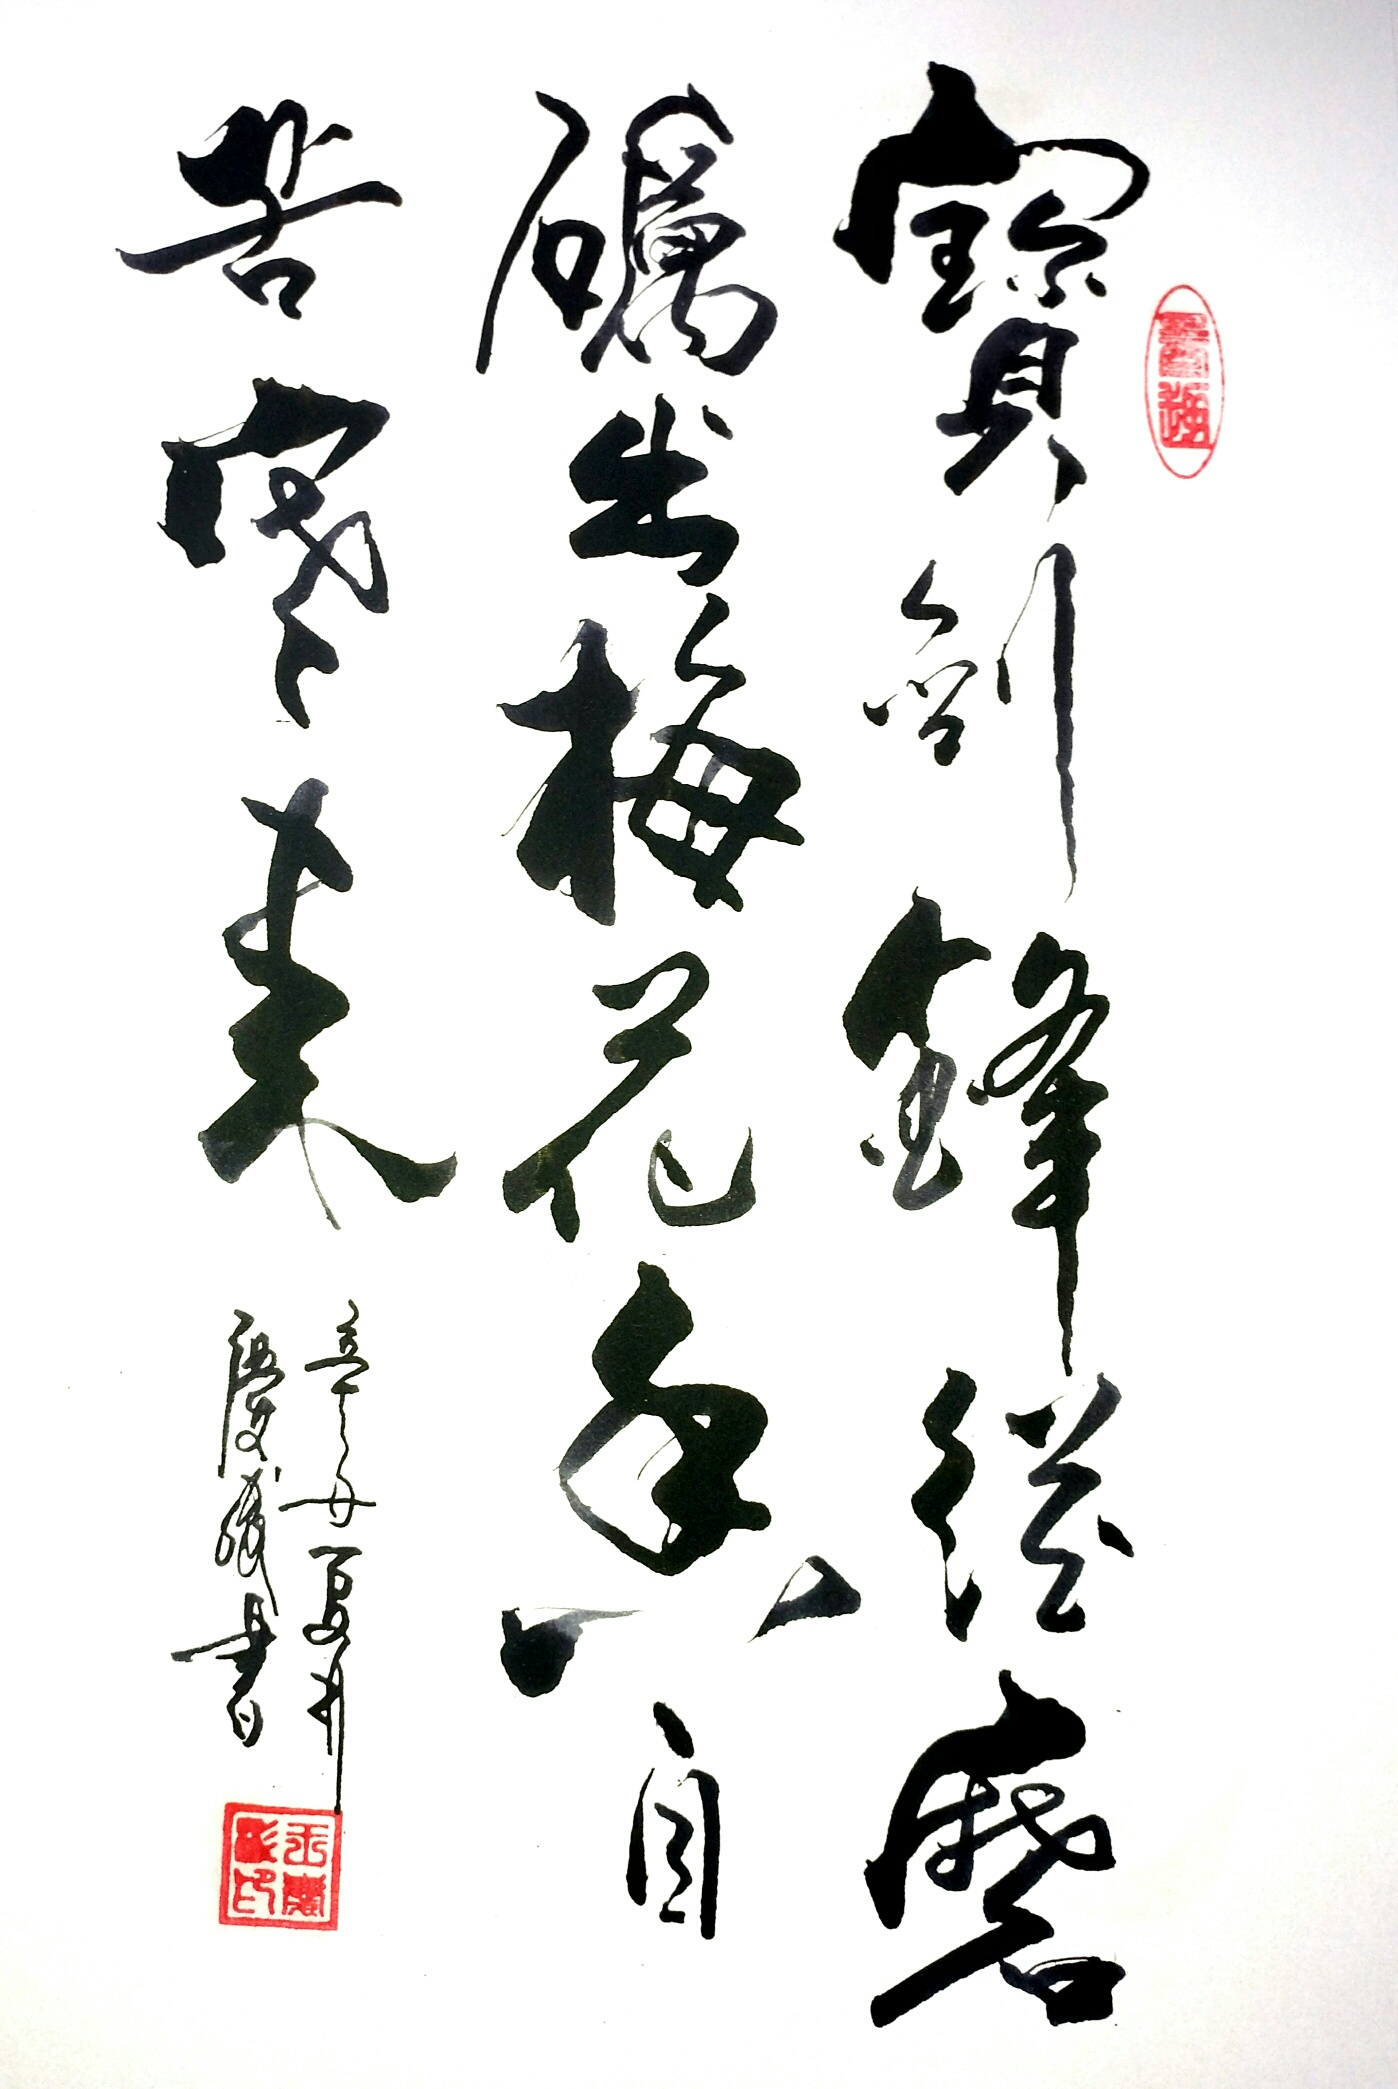 寶劍鋒從磨
礪出梅花香自
苦寒來
辛丑夏月
慶書